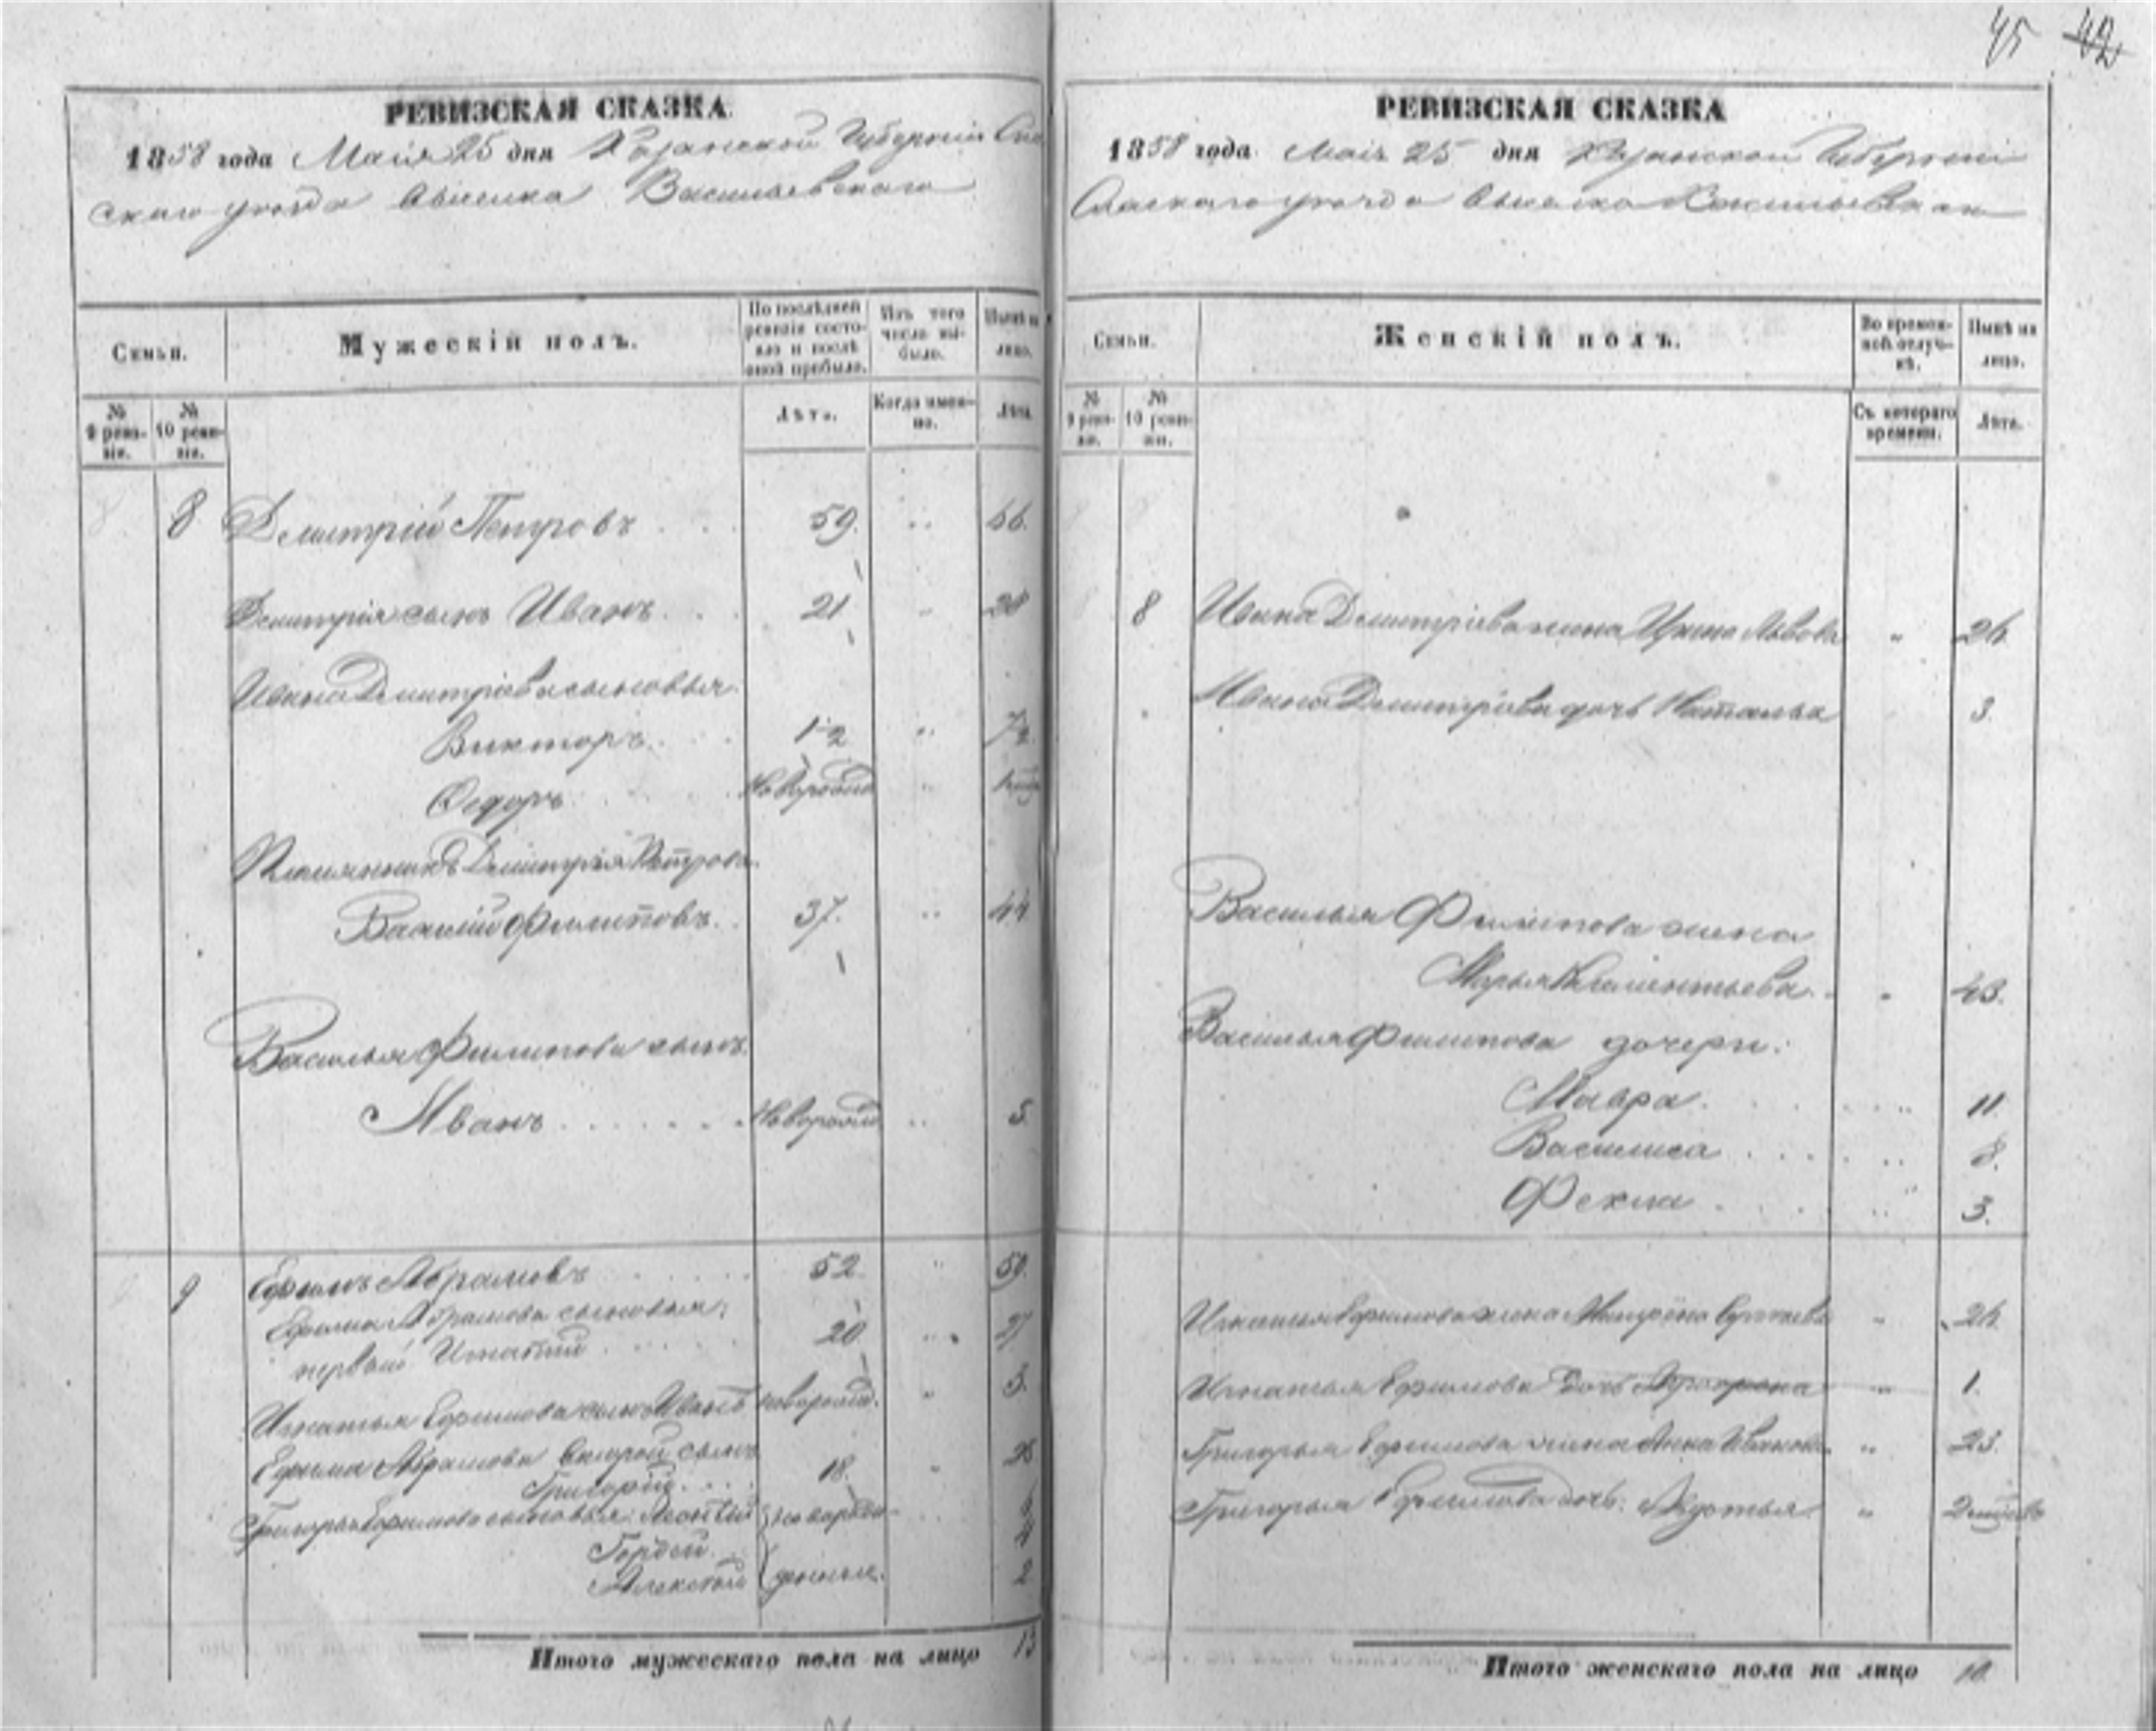 45 42
РЕВИЗСКАЯ СКАЗКА
1858 года Маія 25 дня Казанской Губерніи Спа
скаго уѣзда выселка Васильевскаго
Семьи.
Мужескій полъ.
По послѣдней ревизіи состояло и послѣ оной прибыло.
Изъ того числа выбыло.
Нынѣ на лицо.
№ 9 ревизіи.
№ 10 ревизіи.
Лѣта.
Когда именно.
Лѣта.
8 8 Дмитрій Петровъ 59. 66.
Дмитрія сынъ Иванъ 21 28
Ивана Дмитріева сыновья
Викторъ 1/2 7 1/2
Ѳедоръ новорожд
Племянникъ Дмитрія Петрова
Василій Филиповъ 37. 44
Василья Филипова сынъ
Иванъ новорожд 5.
9 Ефимъ Абрамовъ 52 59.
Ефима Абрамова сыновья:
первый Игнатій 20 27
Игнатья Ефимова сынъ Иванъ новорожд. 3.
Ефима Абрамова второй сынъ
Григорій 18. 25
Григорья Ефимова сыновья: Леонтій новорож-
Гордей
Алексѣй денные. 2
Итого мужескаго пола на лицо 13
РЕВИЗСКАЯ СКАЗКА
1858 года Маія 25 дня Казанской Губерніи
Спаскаго уѣзда выселка Васильевскаго
Семьи.
Женскій полъ.
Во временной отлучкѣ.
Нынѣ на лицо.
№ 9 ревизіи.
№ 10 ревизіи.
Съ котораго времени.
Лѣта.
8 Ивана Дмитріева жена Ирина Львова " 26.
Ивана Дмитріева дочь Наталья 3.
Василья Филипова жена
Марья Климентьева 43.
Василья Филипова дочери:
Мавра 11
Василиса 8.
Фекла 3.
Игнатья Ефимова жена Матрёна " 26.
Игнатья Ефимова дочь " 1.
Григорья Ефимова жена Анна Иванова " 25.
Григорья Ефимова дочь: Авдотья "
Итого женскаго пола на лицо 10.